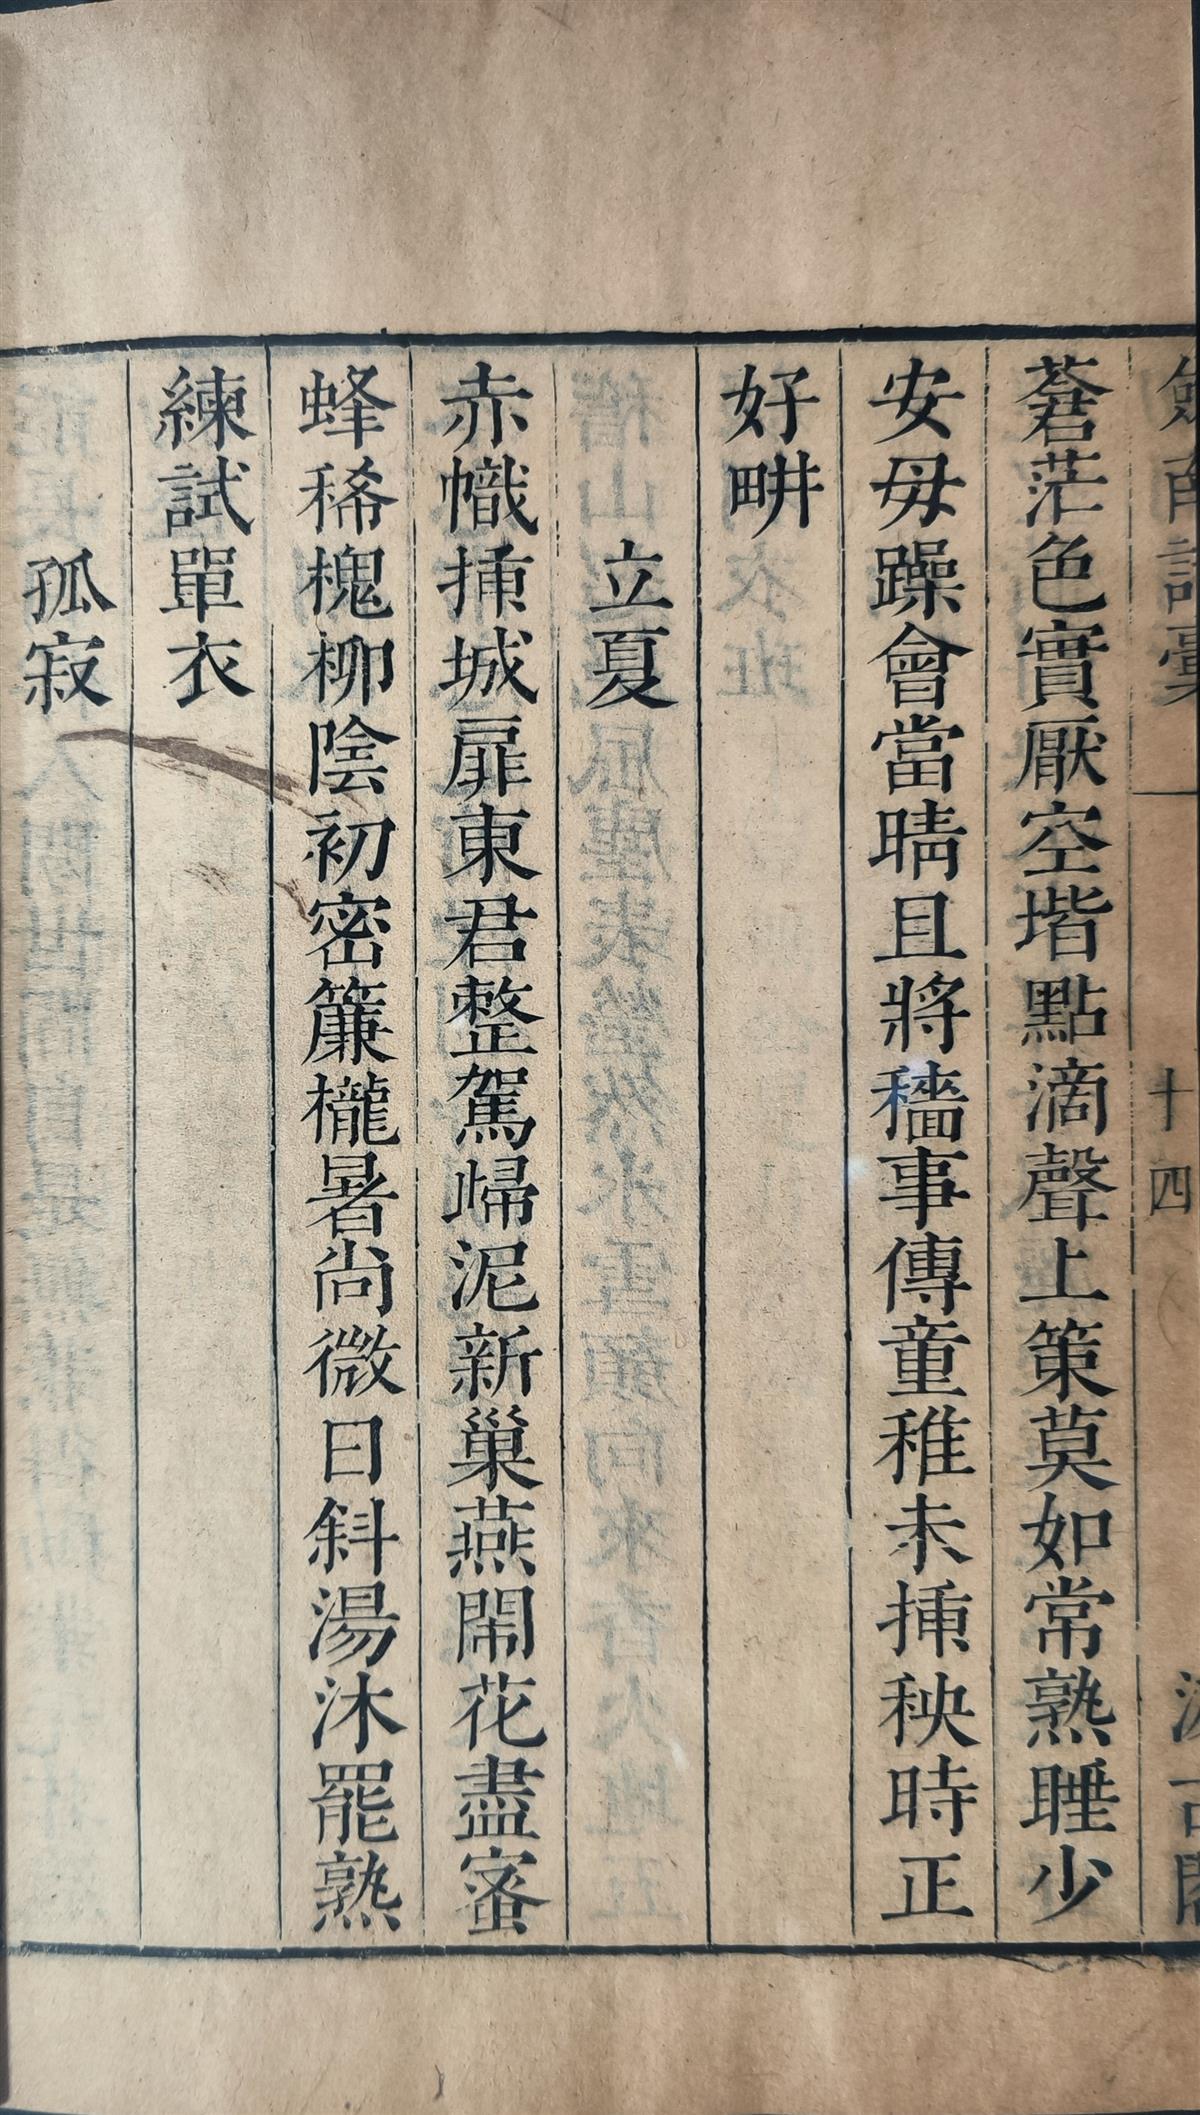 劒南詩稾 十四 汲古閣
蒼茫色實厭空堦點滴聲上策莫如常熟睡少
安毋躁會當晴且將穡事傳童稚未揷秧時正
好畊
立夏
赤幟揷城扉東君整駕歸泥新巢燕閙花盡蜜
蜂稀槐柳陰初密簾櫳暑尚微日斜湯沐罷熟
練試單衣
孤寂